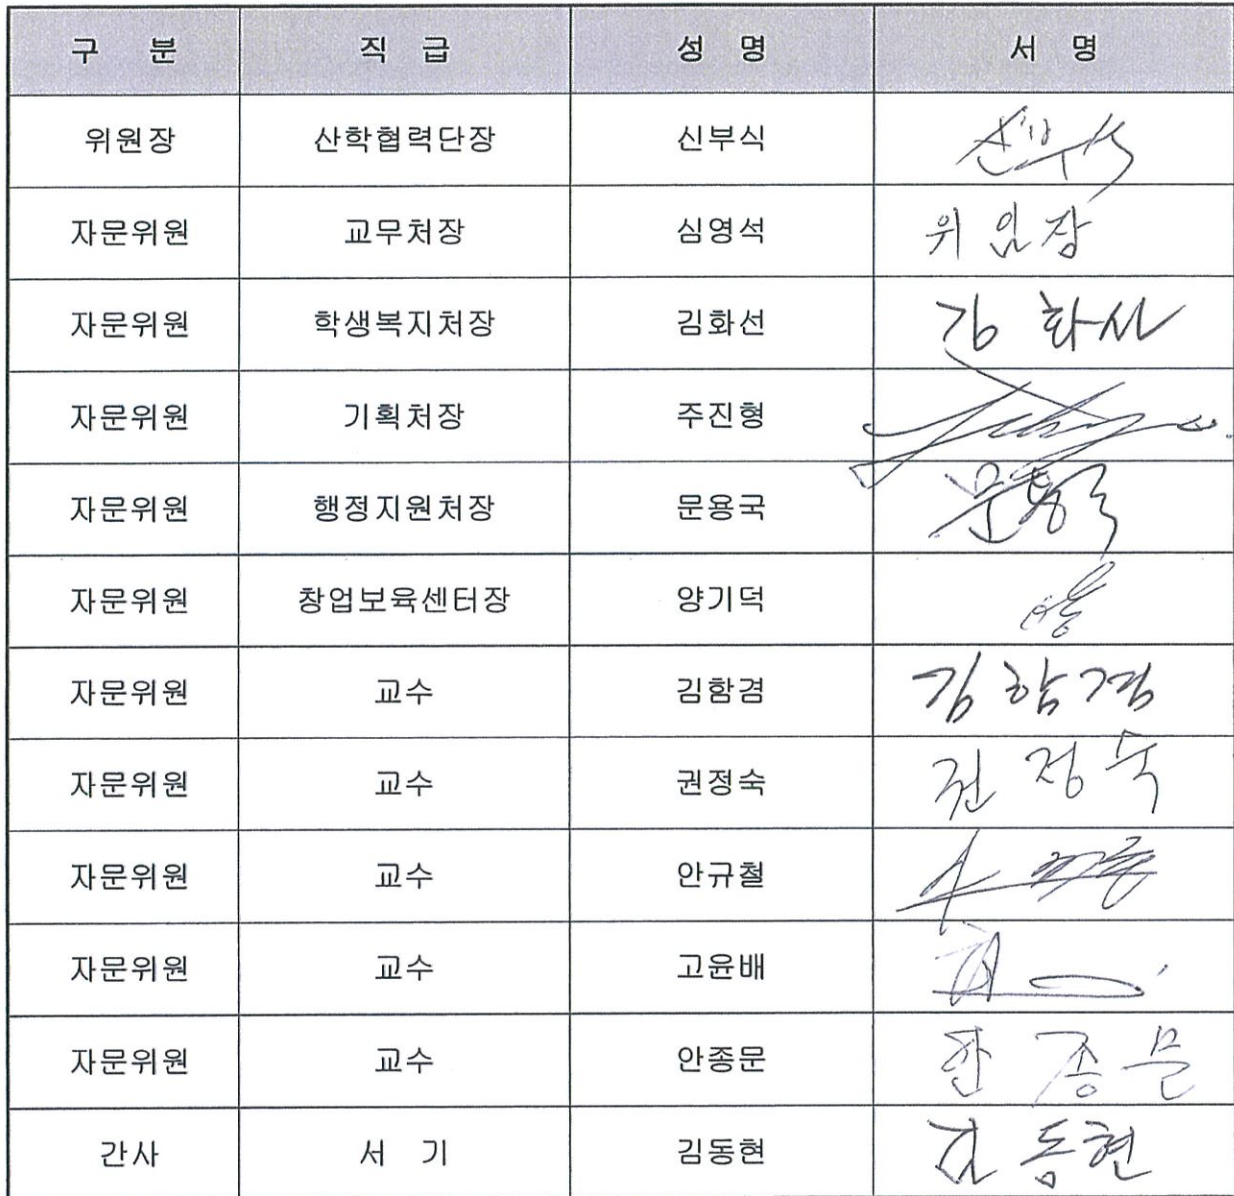 구 분 직 급 성 명 서 명
위원장 산학협력단장 신부식 신부식
자문위원 교무처장 심영석 위임장
자문위원 학생복지처장 김화선 김화선
자문위원 기획처장 주진형
자문위원 행정지원처장 문용국 문용국
자문위원 창업보육센터장 양기덕
자문위원 교수 김함겸 김함겸
자문위원 교수 권정숙 권정숙
자문위원 교수 안규철
자문위원 교수 고윤배
자문위원 교수 안종문 안종문
간사 서 기 김동현 김동현